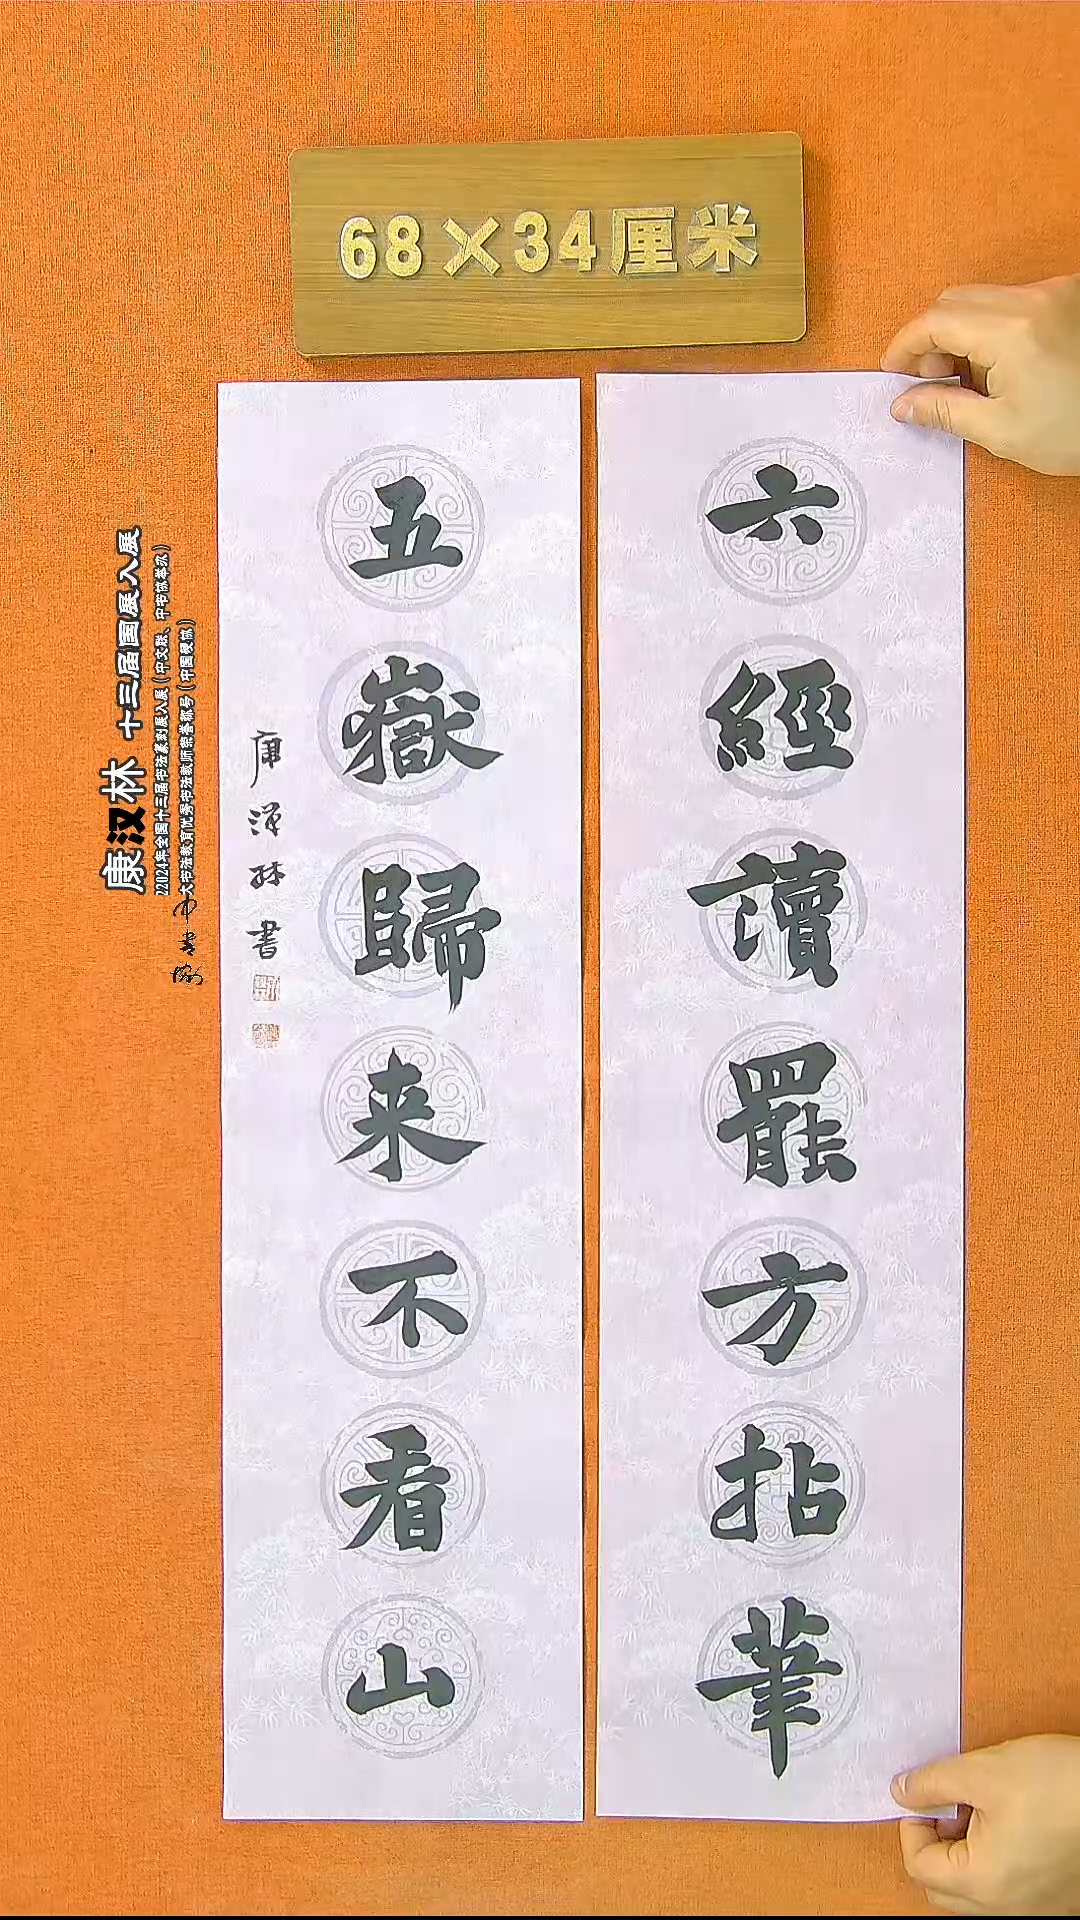 68×34厘米
六經讀罷方拈筆
五嶽歸来不看山
康漢林書
康汉林 十三届国展入展
22024年全国十三届书法篆刻展入展（中文联、中书协举办）
大书法教育优秀书法教师荣誉称号（中国硬协）